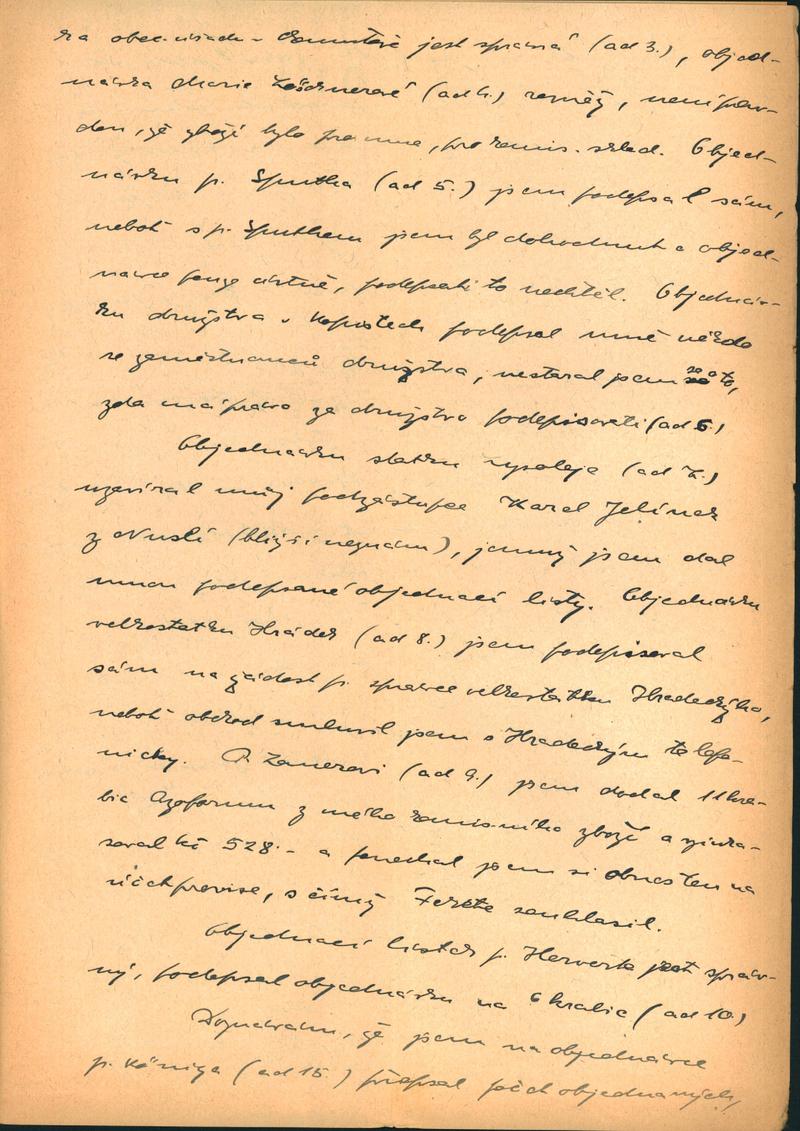 ka obec. úřadu - jest správná (ad 3.), objed-
návka Marie (ad 4.) rovněž, není prav-
dou, že zboží bylo pro mne, pro komis. sklad. Objed-
návku p. Šputha (ad 5.) jsem podepsal sám,
neboť s p. Šputhem jsem byl dohodnut a objed-
návce pouze ústně, podepsati to nechtěl. Objednáv-
ku družstva v Kopistech podepsal mně někdo
ze zaměstnanců družstva, nestaral jsem se o to,
zda má právo za družstvo podepisovati (ad 6.)
Objednávku statku Vysoleje (ad 7.)
uzavíral můj podzástupce Karel Jelínek
z Nuslí (bližší neznám), jemuž jsem dal
mnou podepsané objednací listy. Objednávku
velkostatku Hrádek (ad 8.) jsem podepisoval
sám na žádost p. správce velkostatku Hradeckýho,
neboť obchod smluvil jsem s Hradeckým telefo-
nicky. P. Zamezovi (ad 9.) jsem dodal 11 kra-
bic Azoformu z mého komisního zboží a vyinka-
soval Kč 528.- a ponechal jsem si obnos ten na
účet provise, s čímž Ferkte souhlasil.
Objednací lístek p. Herverta jest správ-
ný, podepsal objednávku na 6 krabic (ad 10.)
Doznávám, že jsem na objednávce
p. Königa (ad 15.) přepsal počet objednaných